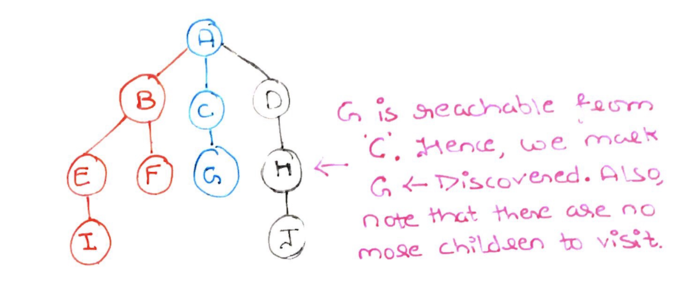 A
B
C
D
E
F
G
H
I
J
G is reachable from
'C'. Hence, we mark
G ← Discovered. Also,
note that there are no
more children to visit.